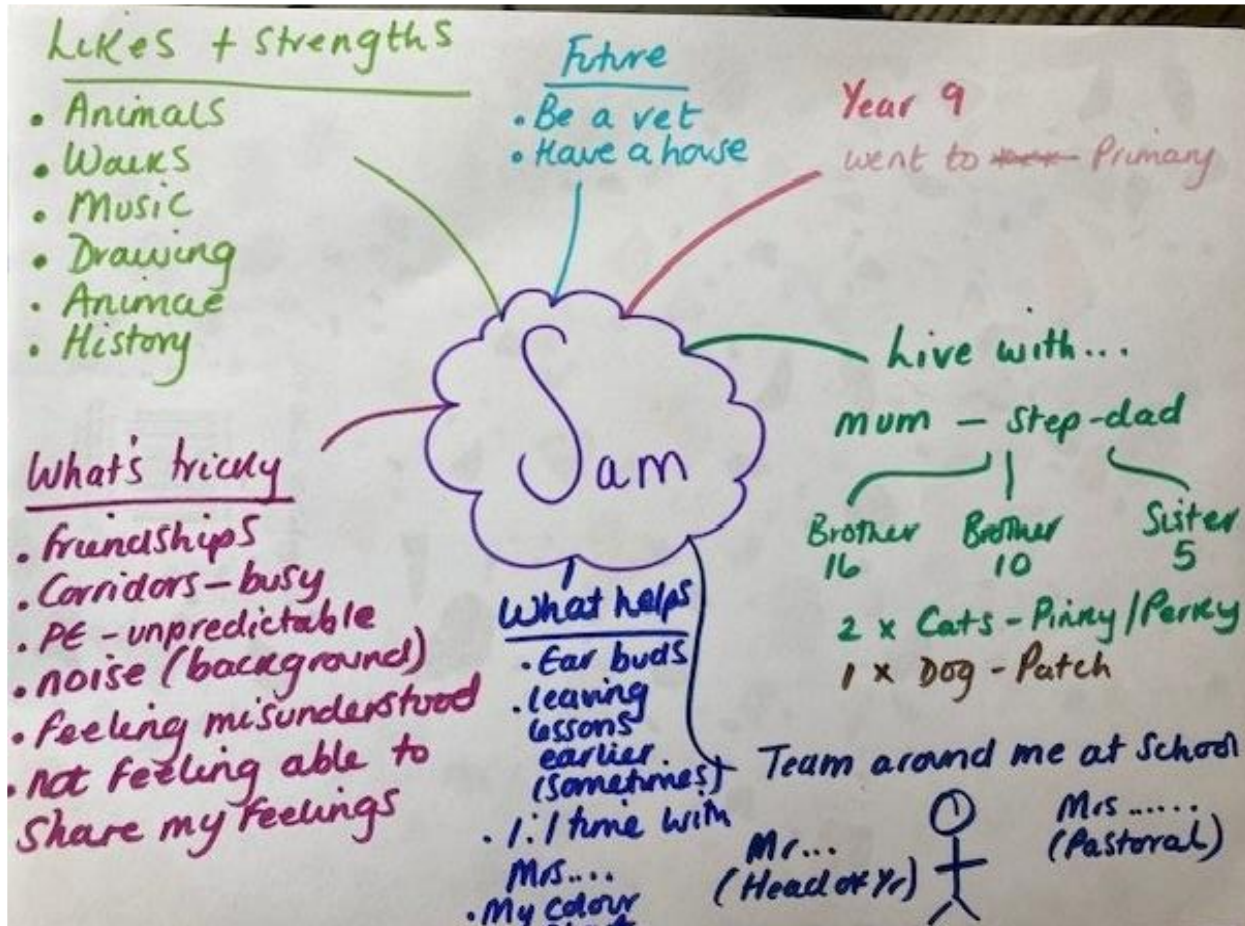 Likes + Strengths
• Animals
• Walks
• Music
• Drawing
• Animae
• History
Future
• Be a vet
• Have a house
Year 9
went to Primary
Sam
Live with...
mum – Step-dad
Brother Brother Sister
16 10 5
2 x Cats - Pinky/Perky
1 x Dog - Patch
What's tricky
• friendships
• Corridors – busy
• PE - unpredictable
• noise (background)
• feeling misunderstood
• not feeling able to
Share my feelings
What helps
• Ear buds
• leaving
lessons
earlier.
(sometimes)
• 1:1 time with
Mrs....
• My colour
Team around me at School
Mr...
(Head of Yr)
Mrs......
(Pastoral)